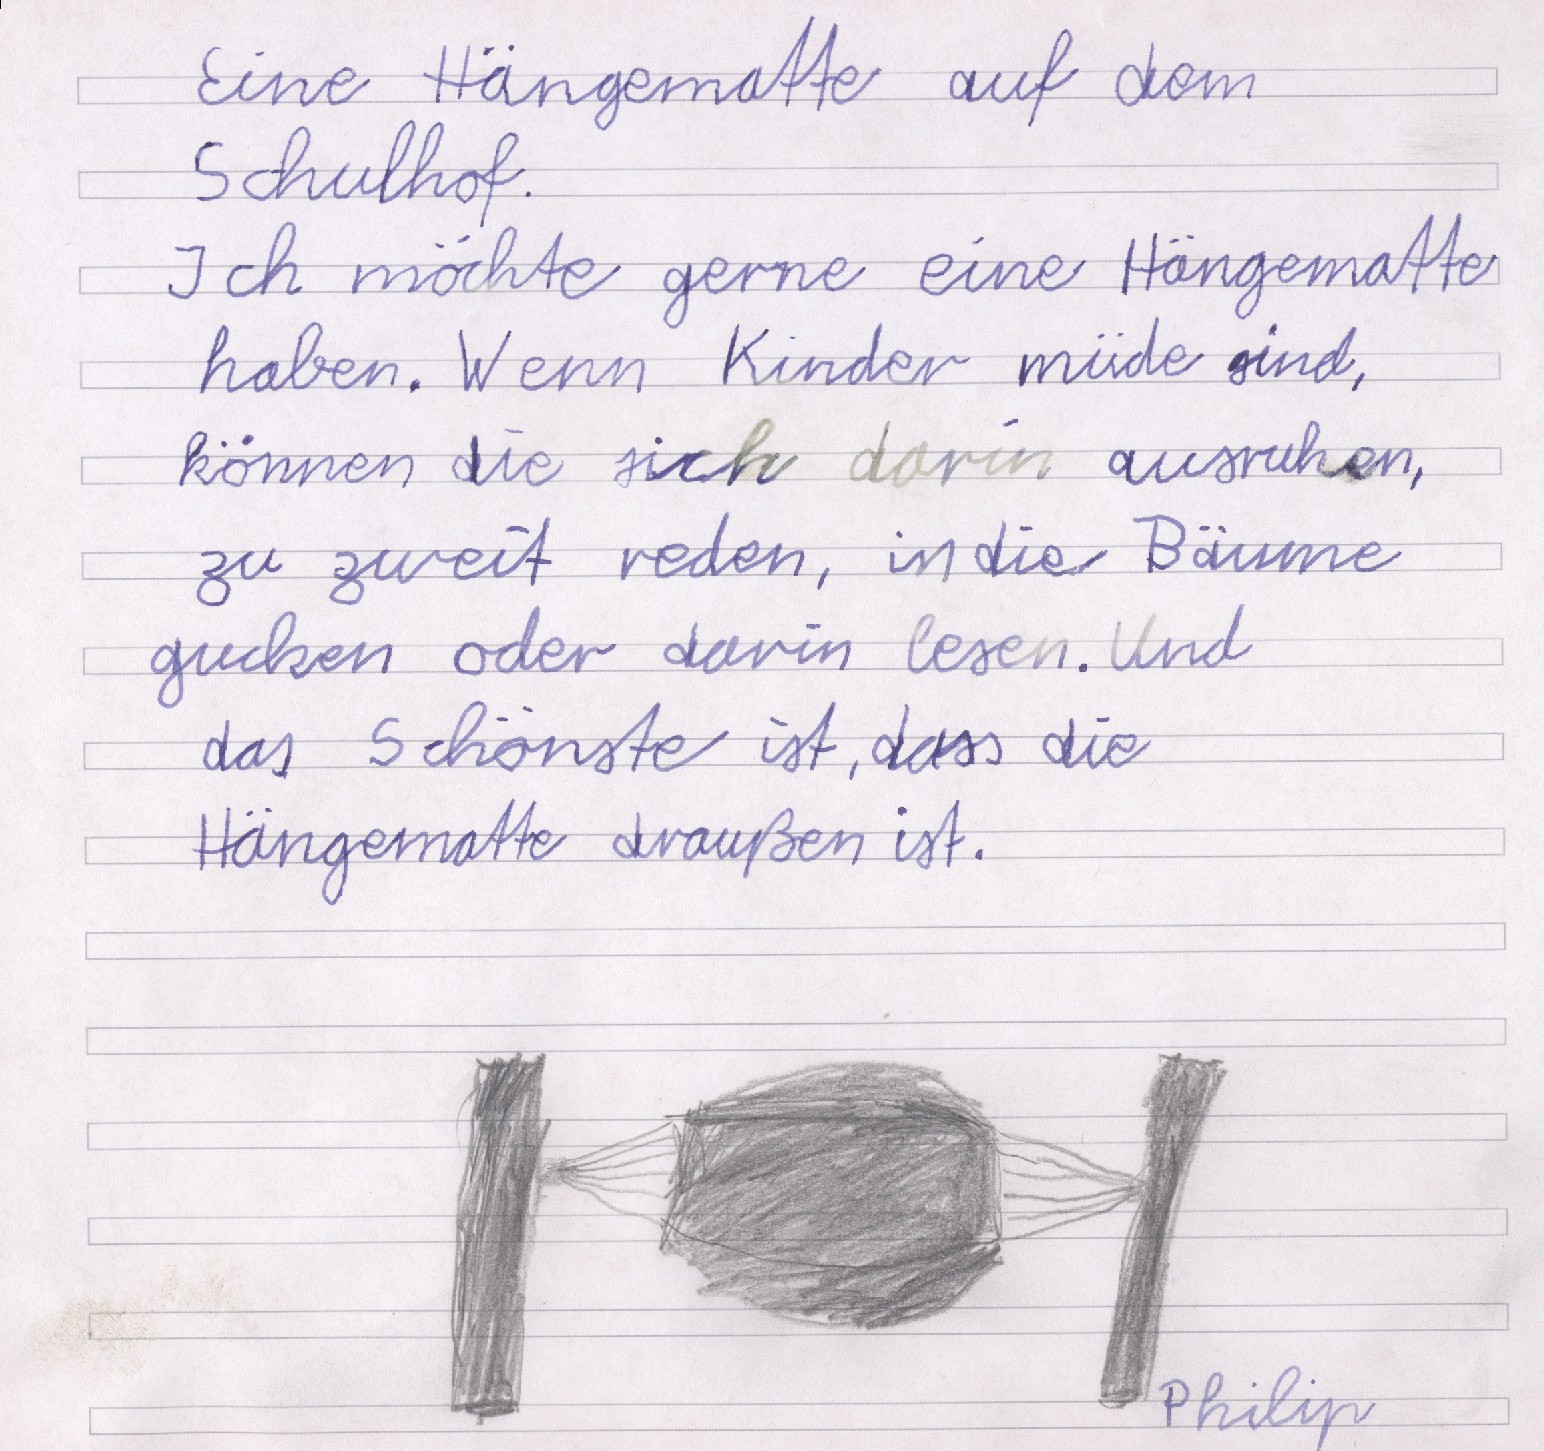 Eine Hängematte auf dem
Schulhof.
Ich möchte gerne eine Hängematte
haben. Wenn Kinder müde sind,
können die sich darin ausruhen,
zu zweit reden, in die Bäume
gucken oder darin lesen. Und
das Schönste ist, dass die
Hängematte draußen ist.
Philip